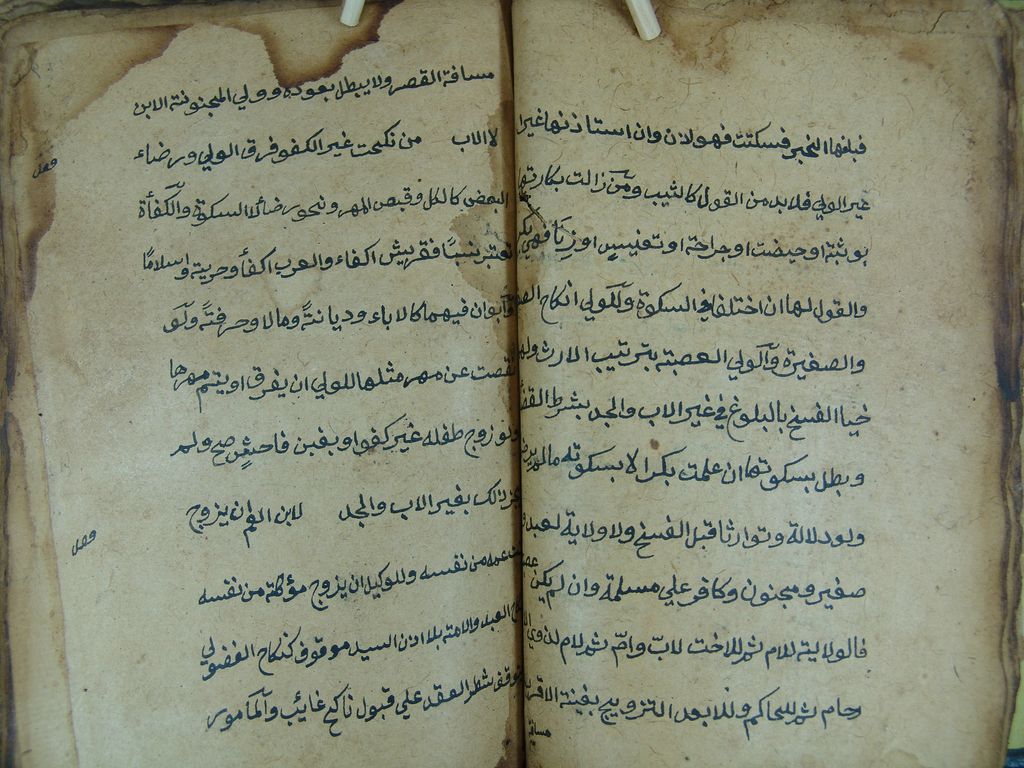 فبلغها الخبر فسكتت فهو لاذن وان استاذنها غير
غير الولي فلا بد من القول كالثيب ومن زالت بكارتها
بوثبة او حيضت او جراحة او تعنيس او زنا فهي بكر
والقول لها ان اختلفا في السكوة وللولي انكاح الصغير
والصغيرة والولي العصبة بترتيب الارث ولهما
خيا الفسخ بالبلوغ في غير الاب والجد بشرط القضا
وبطل بسكوتها ان علمت بكرا لا بسكوته مالم يرض
ولو دلالة وتوارثا قبل الفسخ ولا ولاية لعبد و
صغير ومجنون وكافر علي مسلمة وان لم يكن عصبة
فالولاية للام ثم للاخت لاب وام ثم للام لذوي الا
رحام ثم للحاكم وللابعد التزويج بغيبة الاقرب
مسافة
مسافة القصر ولا يبطل بعوده وولي المجنونة الابن
لا الاب من نكحت غير الكفو فرق الولي ورضاء
فصل
البعض كالكل وقبض المهر ونحوه رضا لا السكوة والكفأة
تعتبر نسبًا فقريش اكفاء والعرب اكفأ وحرية واسلامًا
وابوان فيهما كالاباء وديانةً ومالا وحرفتةً ولو
نقصت عن مهر مثلها للولي ان يفرق او يتم مهرها
ولو زوج طفله غير كفو او بغبن فاحشٍ صح ولم
يجز ذالك بغير الاب والجد لابن العم ان يزوج
فصل
بنت عمه من نفسه وللوكيل ان يزوج مؤكلته من نفسه
ونكاح العبد والامة بلا اذن السيد موقوف كنكاح الفضولي
ولا يتوقف شطر العقد علي قبول ناكح غائب والمأمور